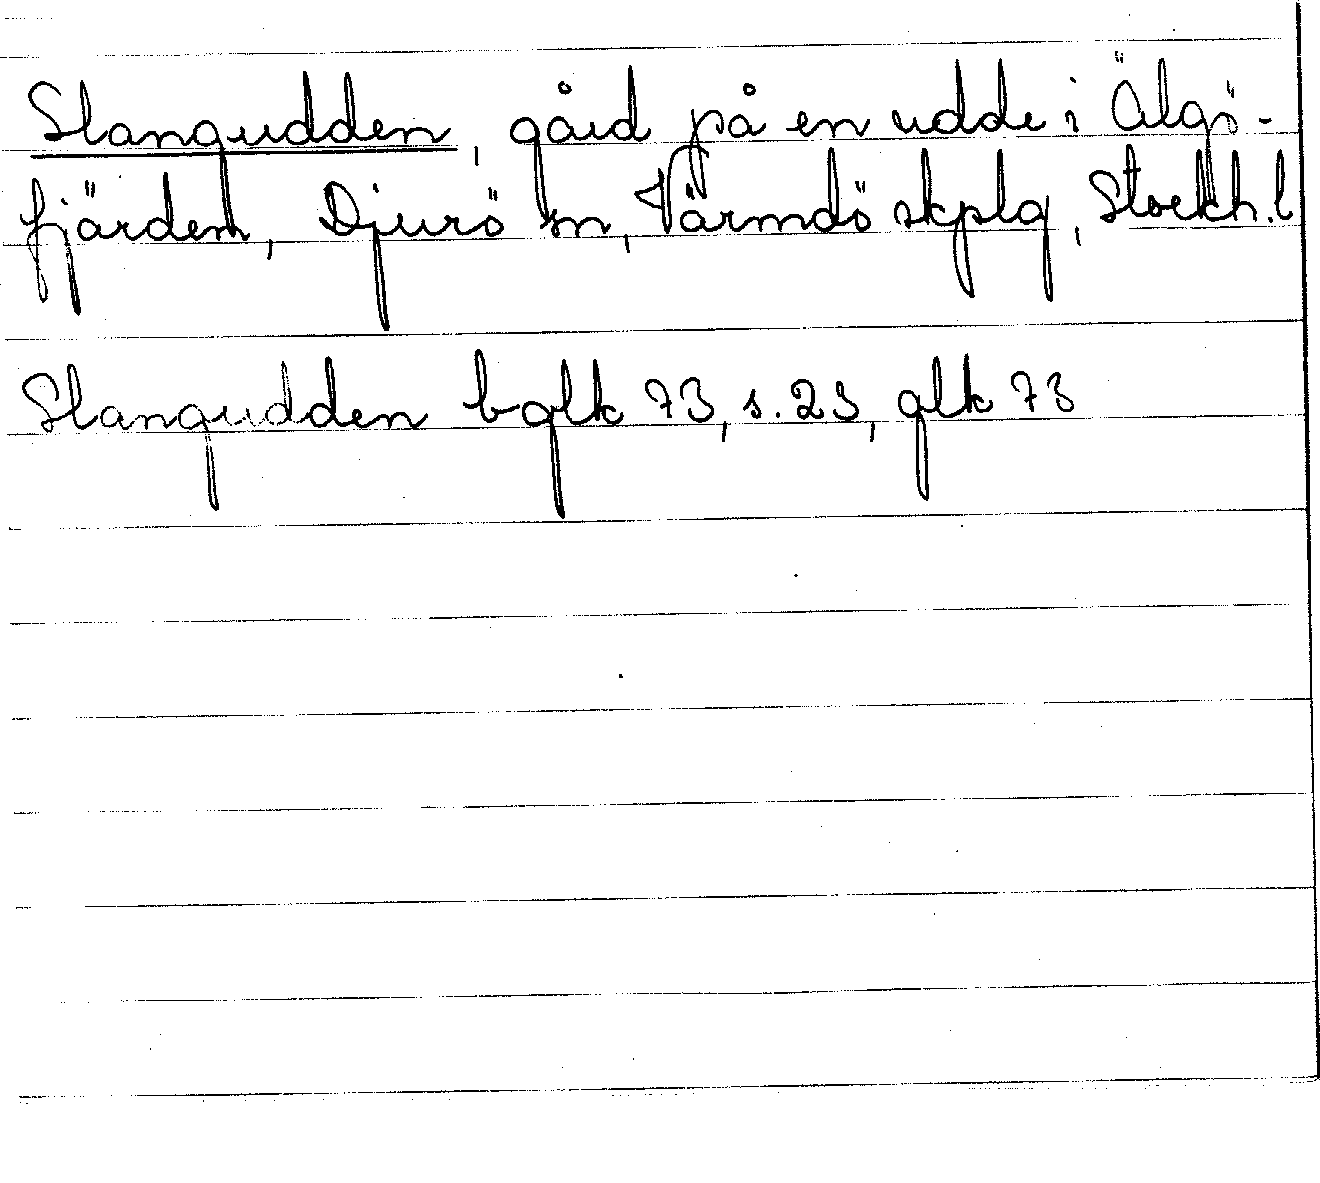 Slangudden, gård på en udde i Älgö-
fjärden, Djurö sn, Värmdö skplg, Stockh. l
Slangudden bglk 73, s. 23, glk 73